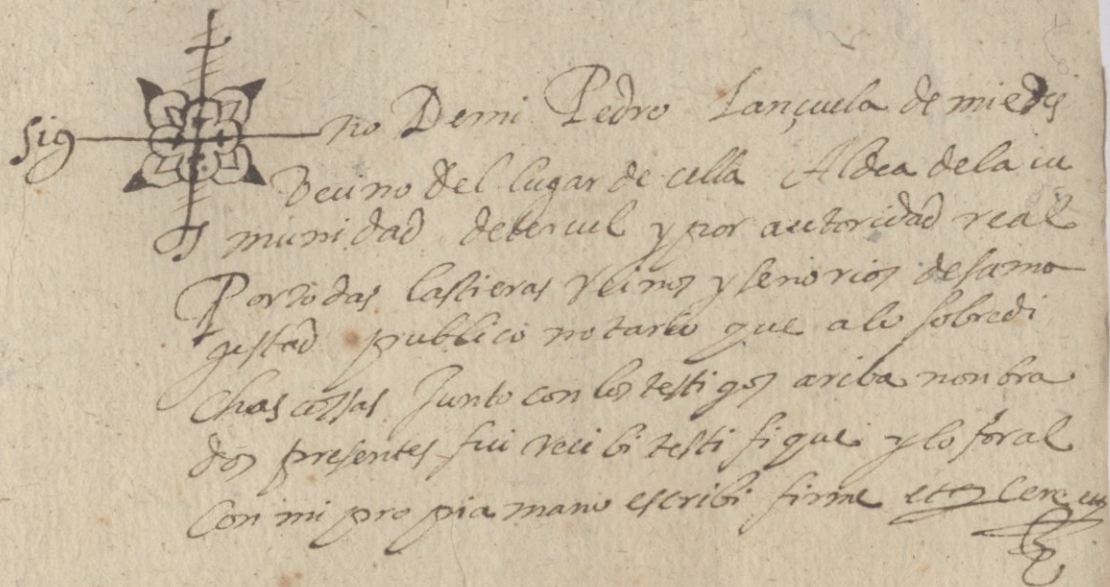 Sig no De mi Pedro Lançuela de miedes
Vecino del lugar de cella Aldea de la cu
munidad de teruel y por autoridad real
Por todas las tieras Reinos y senorios de sa ma
gestad publico notario que a lo sobredi
chas cossas Junto con los testigos ariba nonbra
dos presentes fui recibi testifique y lo foral
con mi propia mano escribi firme et cer